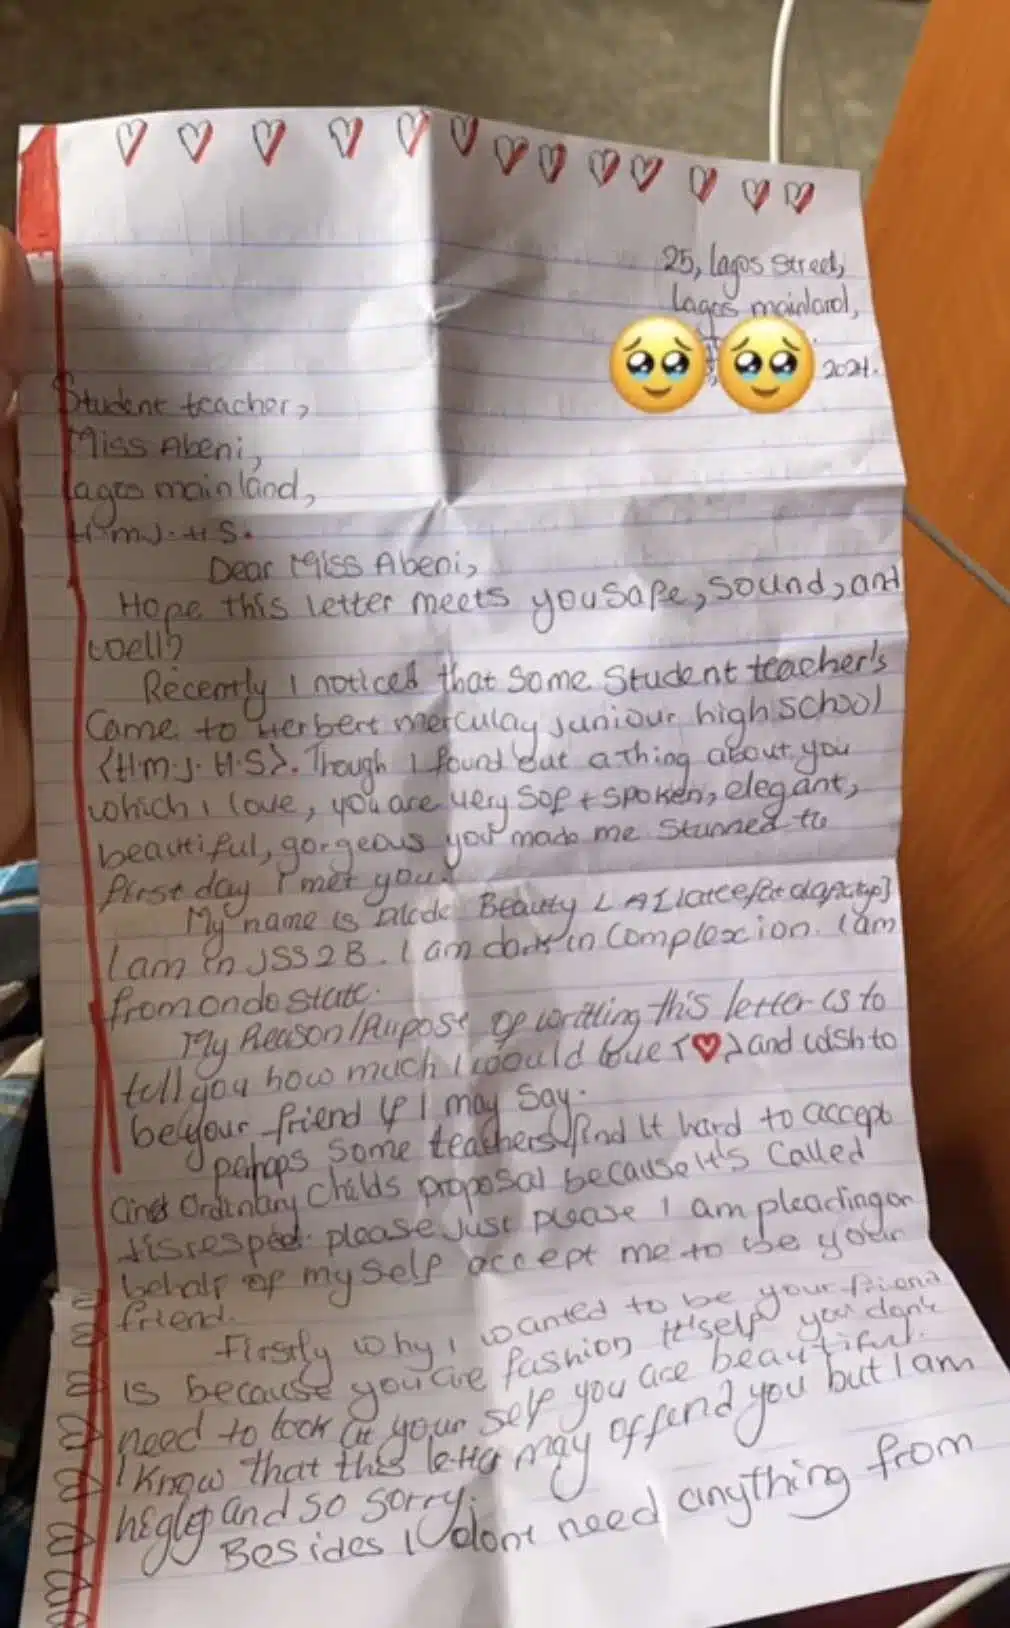 25, lagos street,
lagos mainland,
2024.
Student teacher,
Miss Abeni,
lagos mainland,
H.m.J.H.S.
Dear Miss Abeni,
Hope this letter meets you safe, sound, and
well?
Recently I noticed that some Student teacher's
Came to Herbert merculay juniour high school
<H.m.J.H.S>. Though I found out a thing about you
which i love, you are very Soft spoken, elegant,
beautiful, gorgeous you made me Stunned the
first day I met you.
My name is Beauty
I am in JSS2B. I am dark in Complexcion. I am
from ondo state.
My Reason/Purpose of writting this letter is to
tell you how much I would love <♥> and wish to
be your friend if I may Say.
pehaps Some teachers find it hard to accept
Ordinary Childs proposal because it's Called
disrespect. please just please I am pleading on
behalf of my self accept me to be your
friend.
Firstly why i wanted to be your friend
is because you are fashion itself you don't
need to look at your self you are beautiful.
I know that this letter may offend you but I am
and so sorry.
Besides I dont need anything from